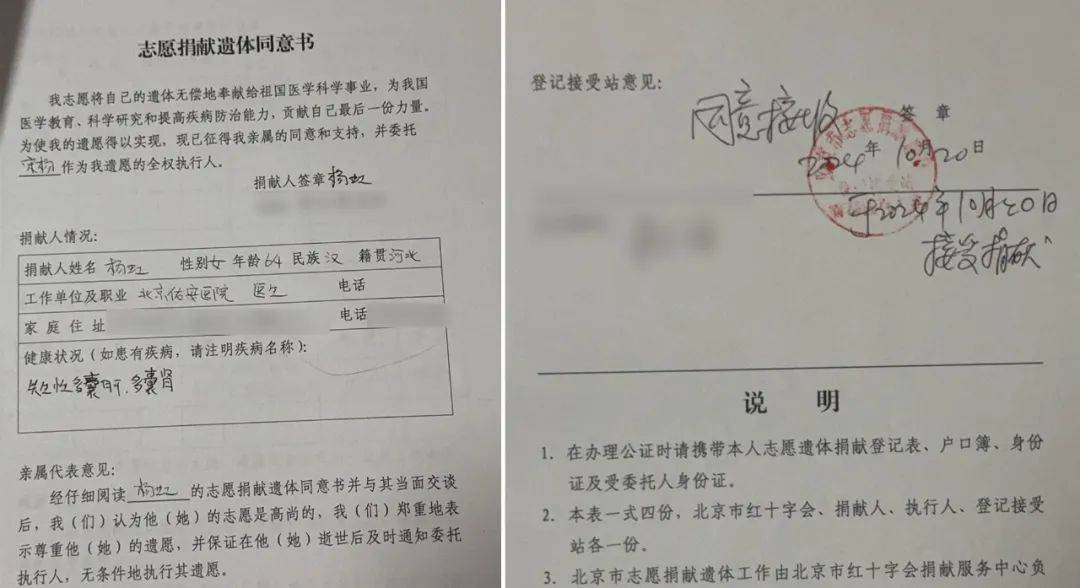 志愿捐献遗体同意书
我志愿将自己的遗体无偿地奉献给祖国医学科学事业，为我国
医学教育、科学研究和提高疾病防治能力，贡献自己最后一份力量。
为使我的遗愿得以实现，现已征得我亲属的同意和支持，并委托
作为我遗愿的全权执行人。
捐献人签章 杨虹
捐献人情况：
捐献人姓名 杨虹 性别 女 年龄 64 民族 汉 籍贯 河北
工作单位及职业 北京佑安医院 医生 电话
家庭住址 电话
健康状况（如患有疾病，请注明疾病名称）：
多囊肝、多囊肾
亲属代表意见：
经仔细阅读 杨虹 的志愿捐献遗体同意书并与其当面交谈
后，我（们）认为他（她）的志愿是高尚的，我（们）郑重地表
示尊重他（她）的遗愿，并保证在他（她）逝世后及时通知委托
执行人，无条件地执行其遗愿。
登记接受站意见：
同意接收 签章
2024年10月20日
于2024年10月20日
接受捐献
说 明
1. 在办理公证时请携带本人志愿遗体捐献登记表、户口簿、身份
证及受委托人身份证。
2. 本表一式四份，北京市红十字会、捐献人、执行人、登记接受
站各一份。
3. 北京市志愿捐献遗体工作由北京市红十字会捐献服务中心负